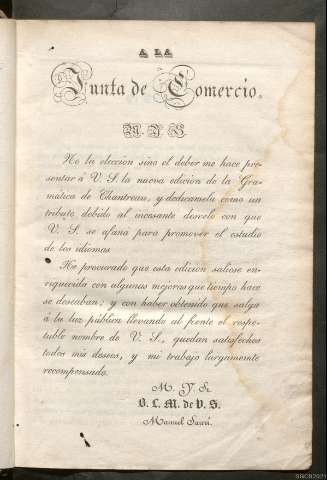 A LA
Junta de Comercio.
No la eleccion sino el deber me hace pre-
sentar á V. S. la nueva edicion de la Gra-
mática de Chantreau, y dedicársela como un
tributo debido al incesante desvelo con que
V. S. se afana para promover el estudio
de los idiomas
He procurado que esta edicion saliese en-
riquecida con algunas mejoras que tiempo hace
se deseaban; y con haber obtenido que salga
á la luz pública llevando al frente el respe-
table nombre de V. S., quedan satisfechos
todos mis deseos, y mi trabajo largamente
recompensado.
M. Y. S.
B. L. M. de V. S.
Manuel Saurí.